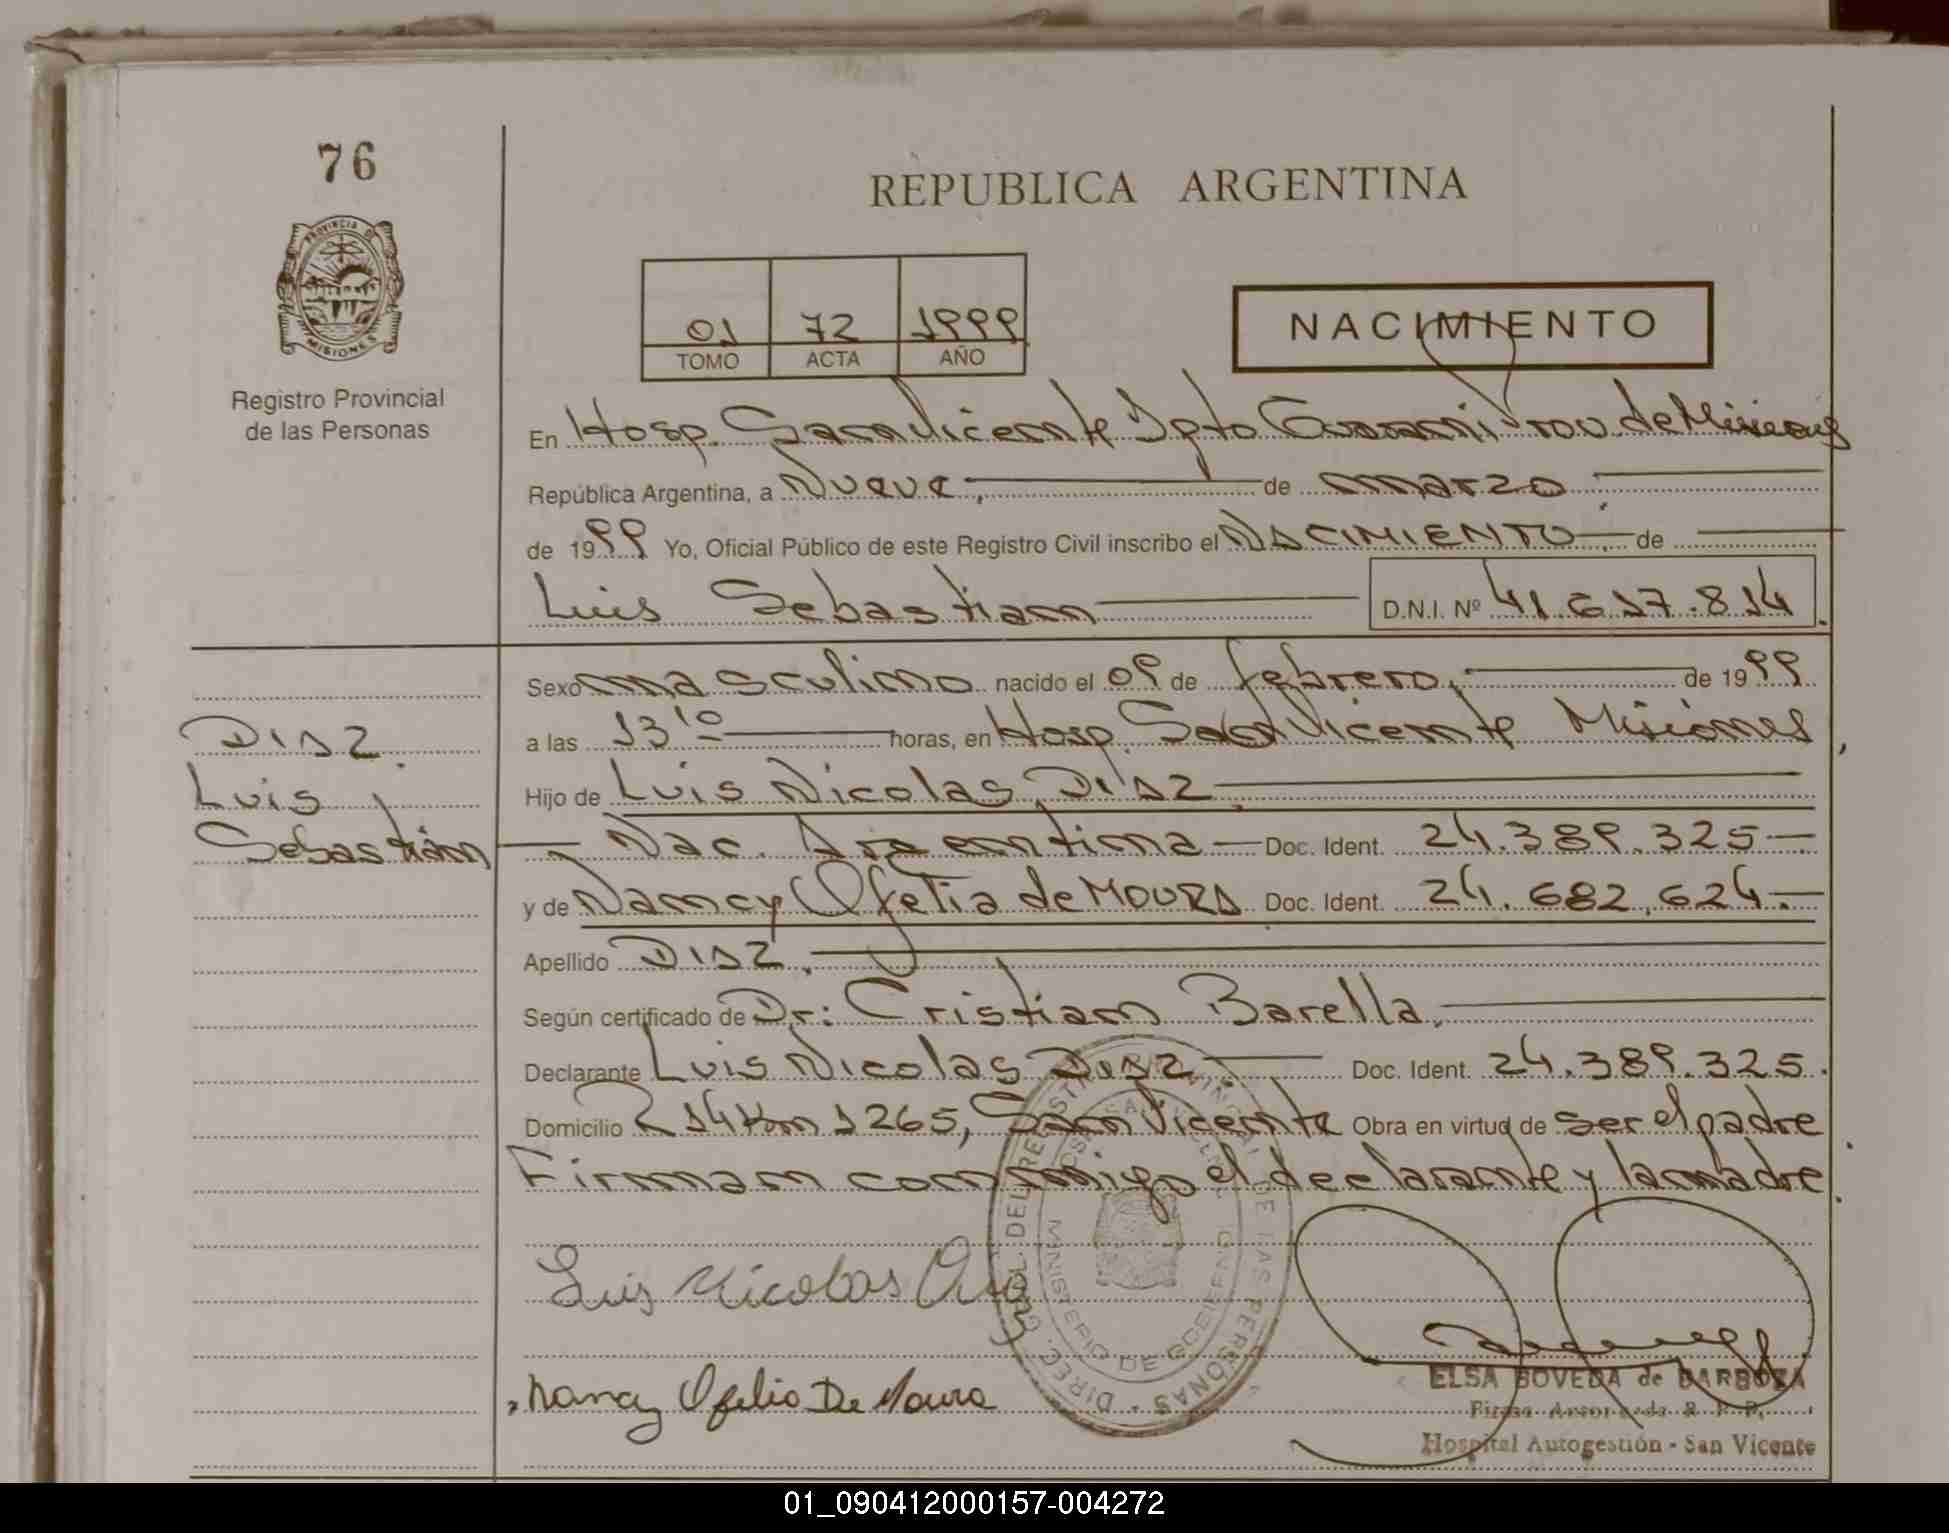 76
REPUBLICA ARGENTINA
PROVINCIA DE
MISIONES
Registro Provincial
de las Personas
01 72 1999
TOMO ACTA AÑO
NACIMIENTO
En Hosp. San Vicente Dpto Guarani Prov. de Misiones
República Argentina, a Nueve, de marzo
de 1999 Yo, Oficial Público de este Registro Civil inscribo el NACIMIENTO de
Luis Sebastian D.N.I. Nº 41.617.814.
Sexo masculino nacido el 09 de febrero, de 1999
DIAZ.
a las 13,10 horas, en Hosp. San Vicente Misiones,
Luis
Hijo de Luis Nicolas, DiAZ
Sebastián
Nac. Argentina Doc. Ident. 24.389.325
y de Nancy Ofelia de MOURA Doc. Ident. 24.682.624.
Apellido DIAZ.
Según certificado de Dr: Cristian Barella.
Declarante Luis Nicolas DIAZ Doc. Ident. 24.389.325.
Domicilio R 14 Km 1265, San Vicente Obra en virtud de ser el padre.
Firman conmigo el declarante y la madre.
Luis Nicolas
Nancy Ofelia De Moura
DIREC. GRAL. DEL REGISTRO PROVINCIAL DE LAS PERSONAS
MINISTERIO DE GOBIERNO
ELSA BOVEDA de BARBOZA
Firma Autorizada R. P. P.
Hospital Autogestión - San Vicente
01_090412000157-004272